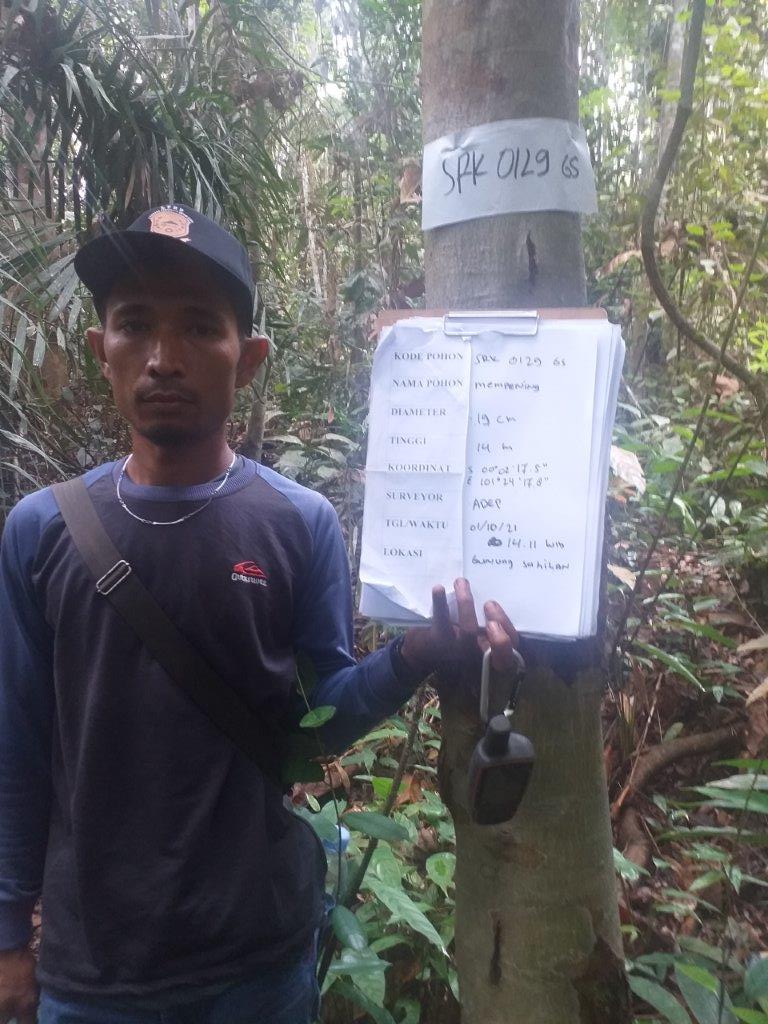 SRK 0129 GS
KODE POHON SRK 0129 GS
NAMA POHON mempening
DIAMETER 19 cm
TINGGI 14 m
KOORDINAT S 00°02'17.5"
E 101°24'17.8"
SURVEYOR ADEP
TGL/WAKTU 01/10/21
14.11 WIB
LOKASI Gunung Sahilan
QUIKSILVER